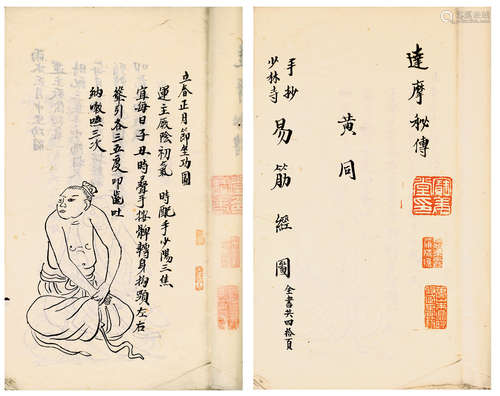 達摩秘傳
黃同
手抄
少林寺
易筋經圖
全書共四拾頁
立春正月節坐功圖
運主厥陰初氣 時配手少陽三焦
宜每日子丑時疊手按髀轉身拗頸左右
聳引各三五度叩齒吐
納嗽嚥三次